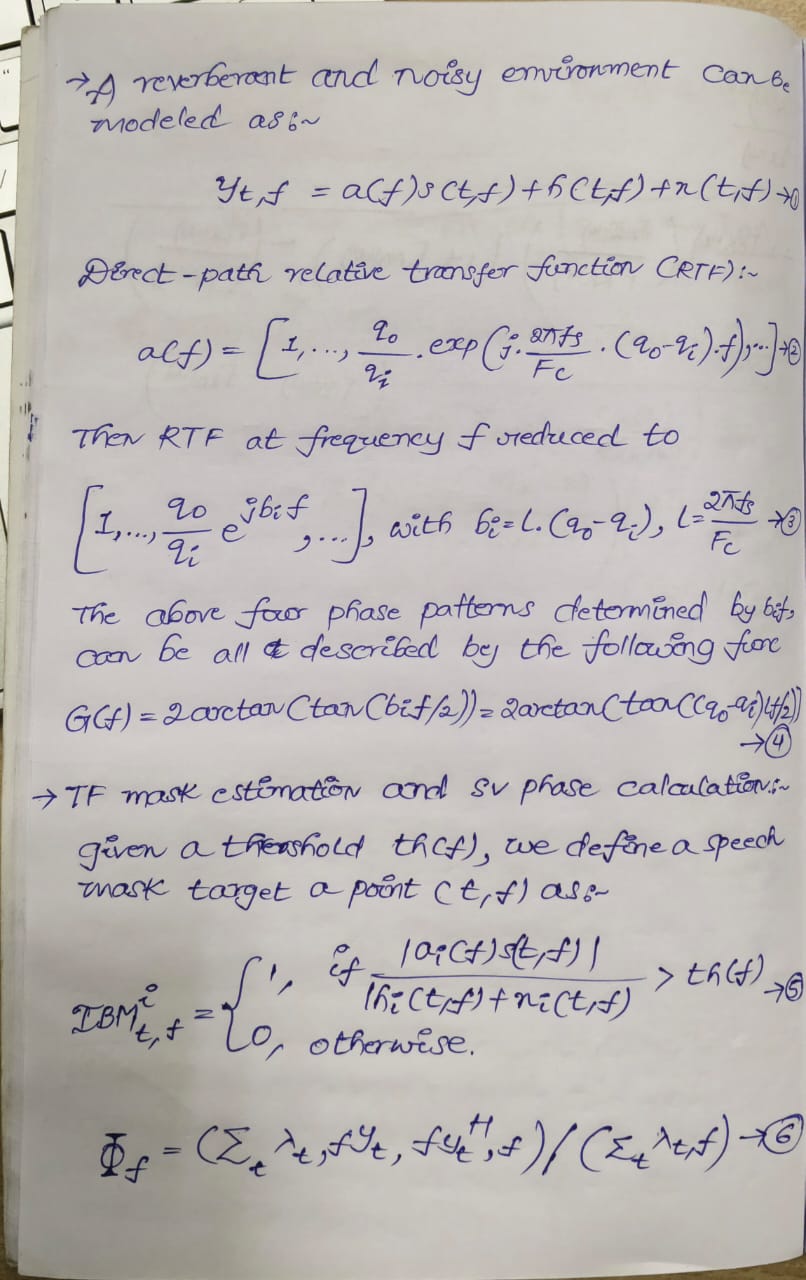 → A reverberant and noisy environment can be
modeled as:~
y_{t,f} = a(f)s(t,f)+h(t,f)+n(t,f) →①
Direct-path relative transfer function (RTF):~
a(f) = [1,..., q₀/qᵢ . exp(j. 2πfs/Fc . (q₀-qᵢ).f),...] →②
Then RTF at frequency f reduced to
[1,..., q₀/qᵢ e^{jbᵢf},...], with bᵢ=L.(q₀-qᵢ), L=2πfs/Fc →③
The above four phase patterns determined by bᵢf,
can be all described by the following func
G(f) = 2arctan(tan(bᵢf/2)) = 2arctan(tan((q₀-qᵢ)Lf/2))
→④
→ TF mask estimation and SV phase calculation:~
given a threshold th(f), we define a speech
mask target a point (t,f) as:~
IBMⁱ_{t,f} = { 1, if |aᵢ(f)s(t,f)| / |hᵢ(t,f)+nᵢ(t,f) > th(f) →⑤
0, otherwise.
Φ_f = (Σ_t λ_t,f y_t, f y_t^H,f) / (Σ_t λ_t,f) →⑥